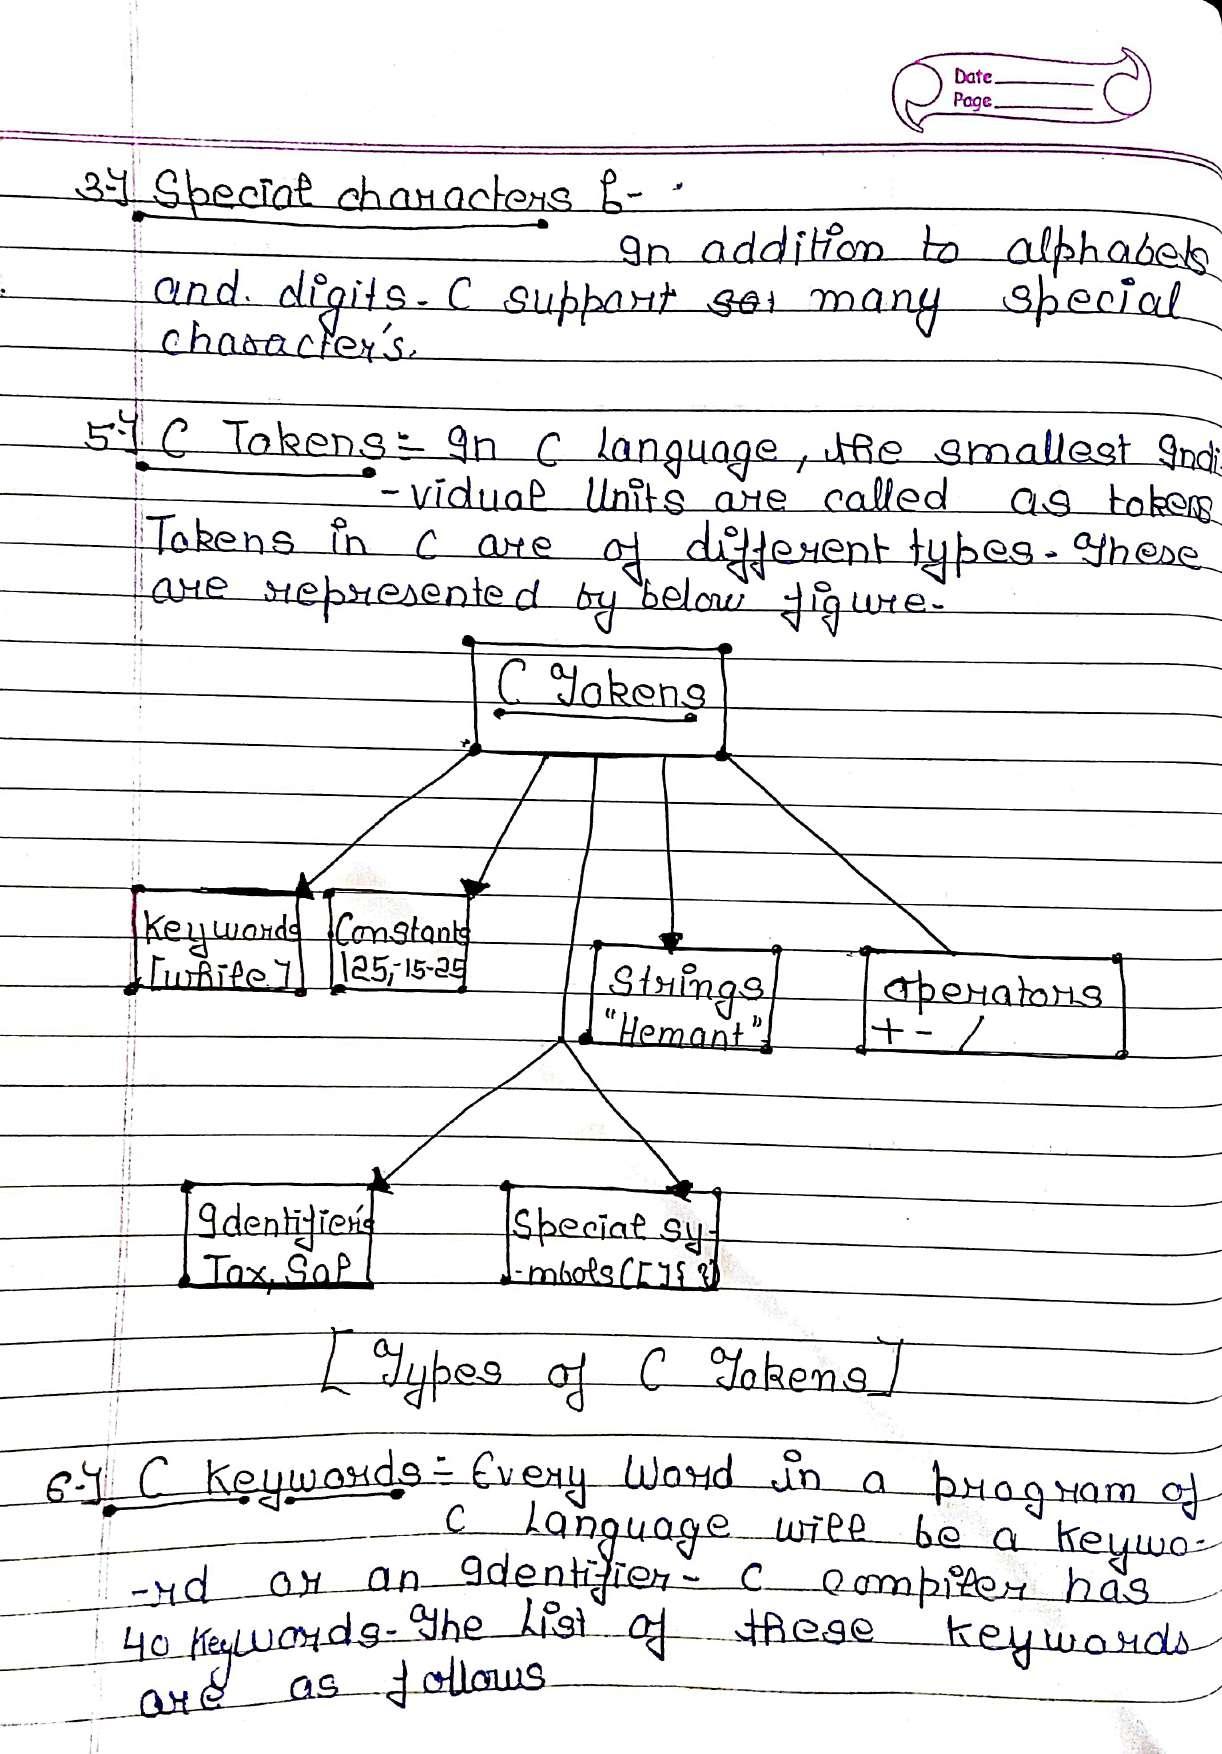 Date
Page
3-y Special characters :-
In addition to alphabets
and. digits. C support many special
character's.
5-y C Tokens = In C Language, the smallest Indi
-vidual Units are called as tokens
Tokens in C are of different types. These
are represented by below figure.
C Tokens
Keywords Constants
[while] 125,-15-25
Strings operators
"Hemant" + - /
Identifier's Special sy-
Tax, Sal -mbols ([]{})
[Types of C Tokens]
6-y C Keywords = Every Word in a program of
C Language will be a keywo-
-rd or an Identifier- C compiler has
40 Keywords. The List of these keywords
are as follows